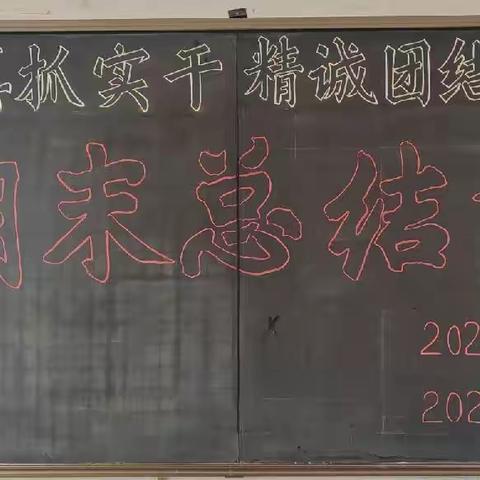 抓实干 精诚团结
期末总结
202
202